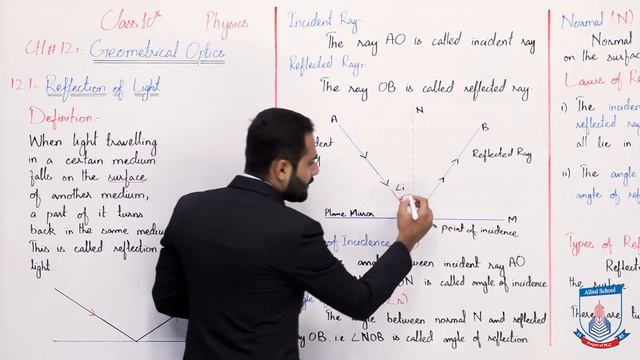 Class 10th Physics
CH # 12: Geometrical Optics
12.1: Reflection of Light
Definition:-
When light travelling
in a certain medium
falls on the surface
of another medium,
a part of it turns
back in the same medium
This is called reflection
light
Incident Ray:
The ray AO is called incident ray
Reflected Ray:-
The ray OB is called reflected ray.
A
N
B
Reflected Ray
Li
Plane Mirror
M
point of incidence
of Incidence
angle between incident ray AO
ON is called angle of incidence
The angle between normal N and reflected
OB. i.e ∠NOB is called angle of reflection.
Normal (N)
Normal
on the surfac
Laws of Re
i) The incide
reflected ray
all lie in
ii) The angle
angle of ref
Types of Ref
Reflec
the surface
There are tw
Allied School
Project of PGC